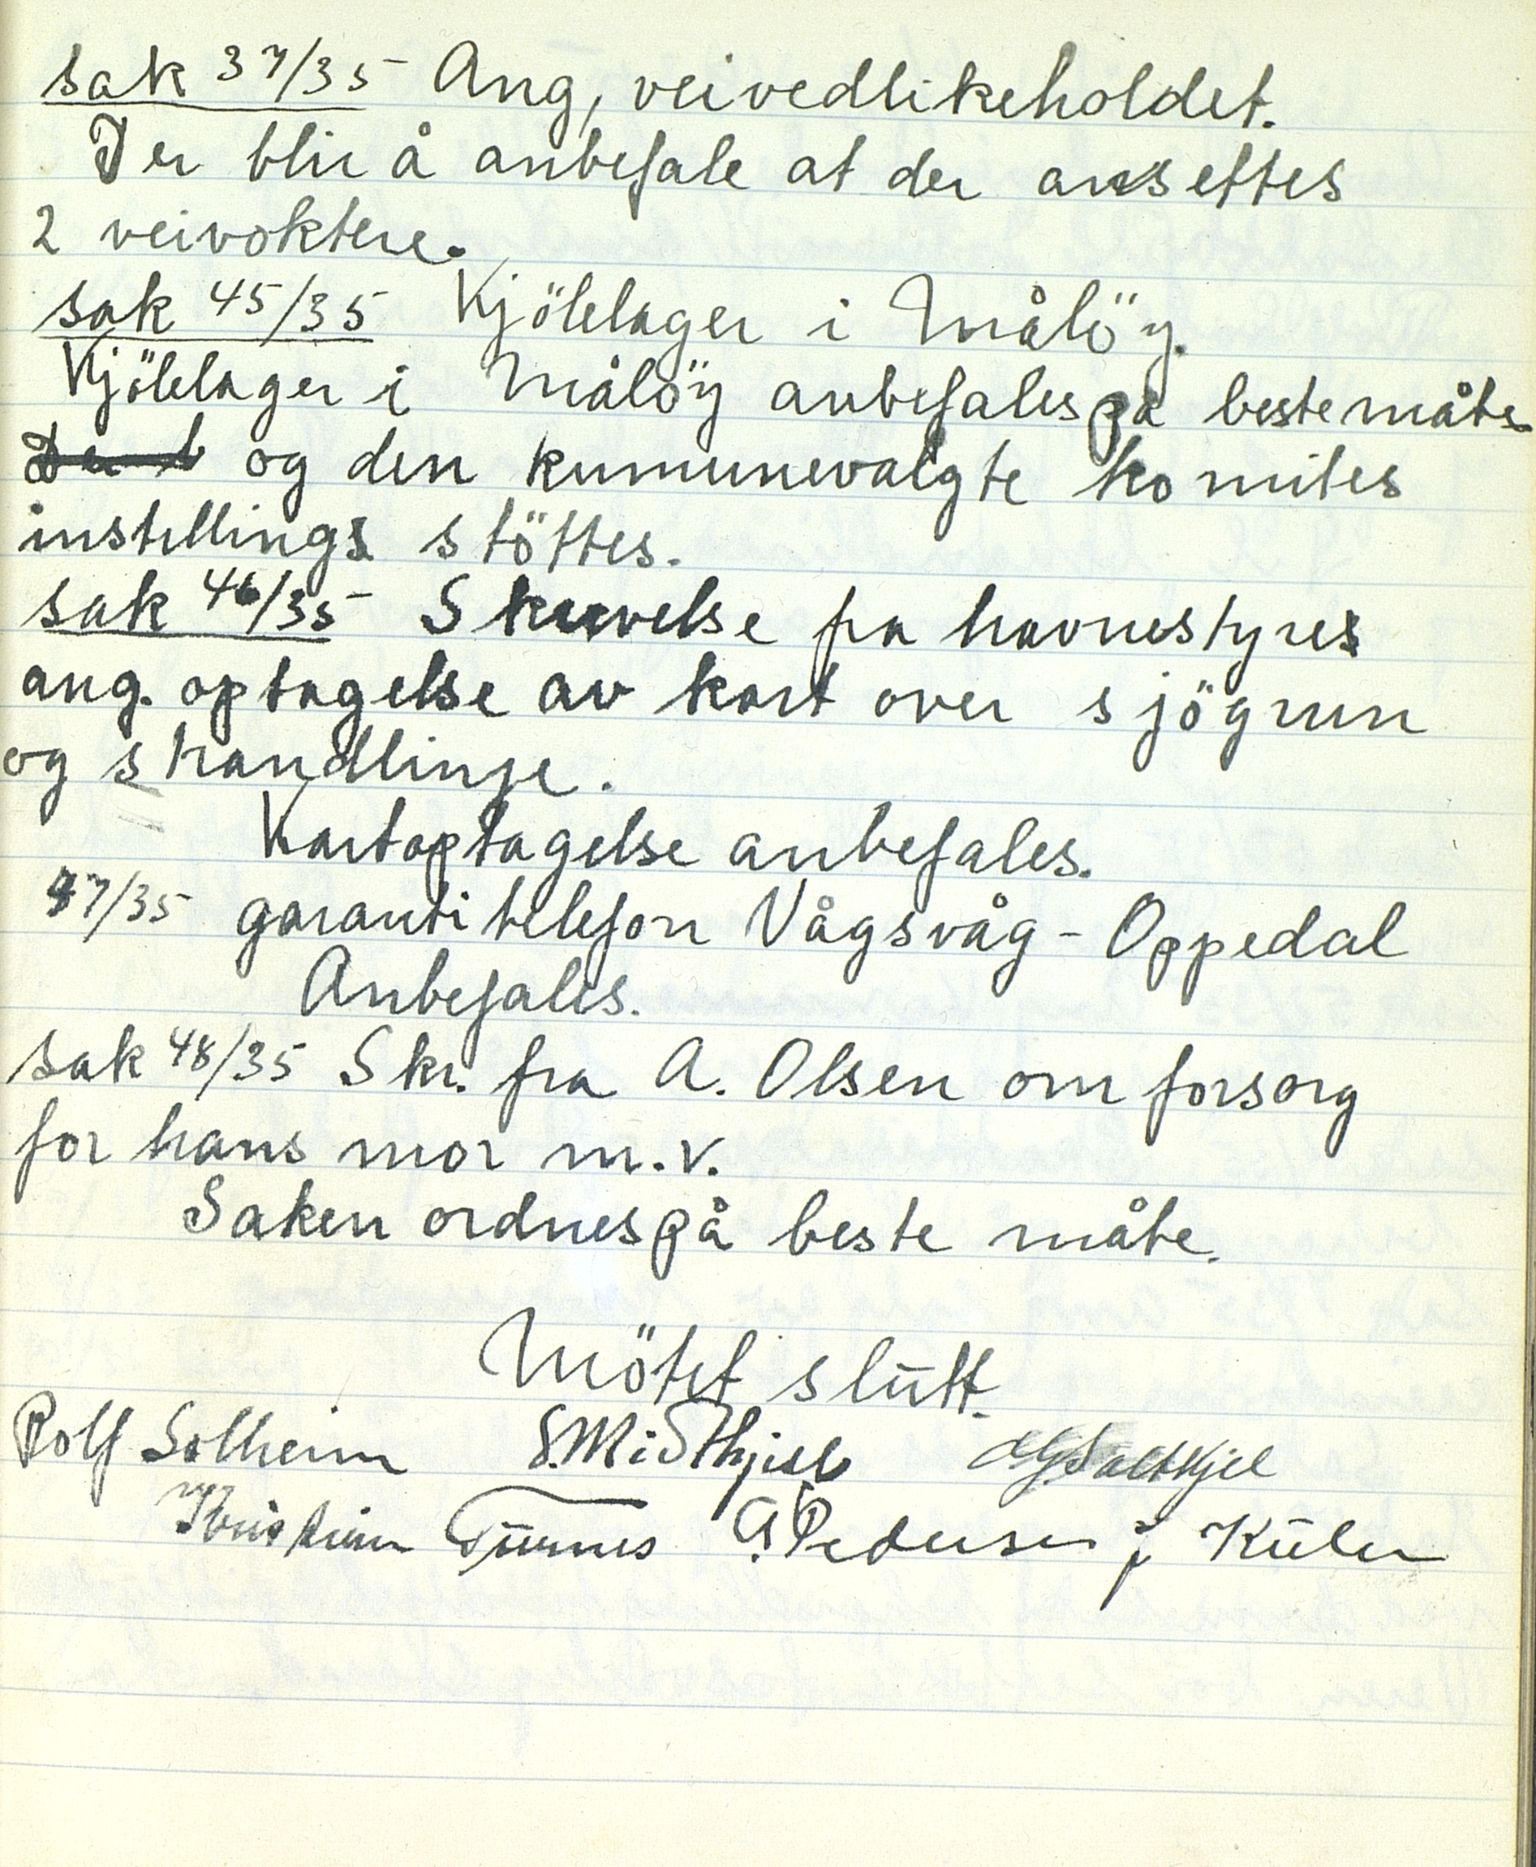 sak 37/35 Ang, veivedlikeholdet.
Der blir å anbefale at der ansettes
2 veivoktere.
sak 45/35 Kjölelager i Målöy.
Kjölelager i Målöy anbefales på beste måte
og den kumunevalgte komites
instillings stöttes.
sak 46/35 Skrivelse fra havnestyres
ang. optagelse av kart over sjögrunn
og strandlinje.
Kartoptagelse anbefales.
47/35 garanti telefon Vågsvåg - Oppedal
Anbefales.
sak 48/35 Skr. fra A. Olsen om forsorg
for hans mor m.v.
Saken ordnes på beste måte.
Mötet slutt.
Rolf Solheim S. Midthjell Salthjel
Kristian Turnes Pedersen